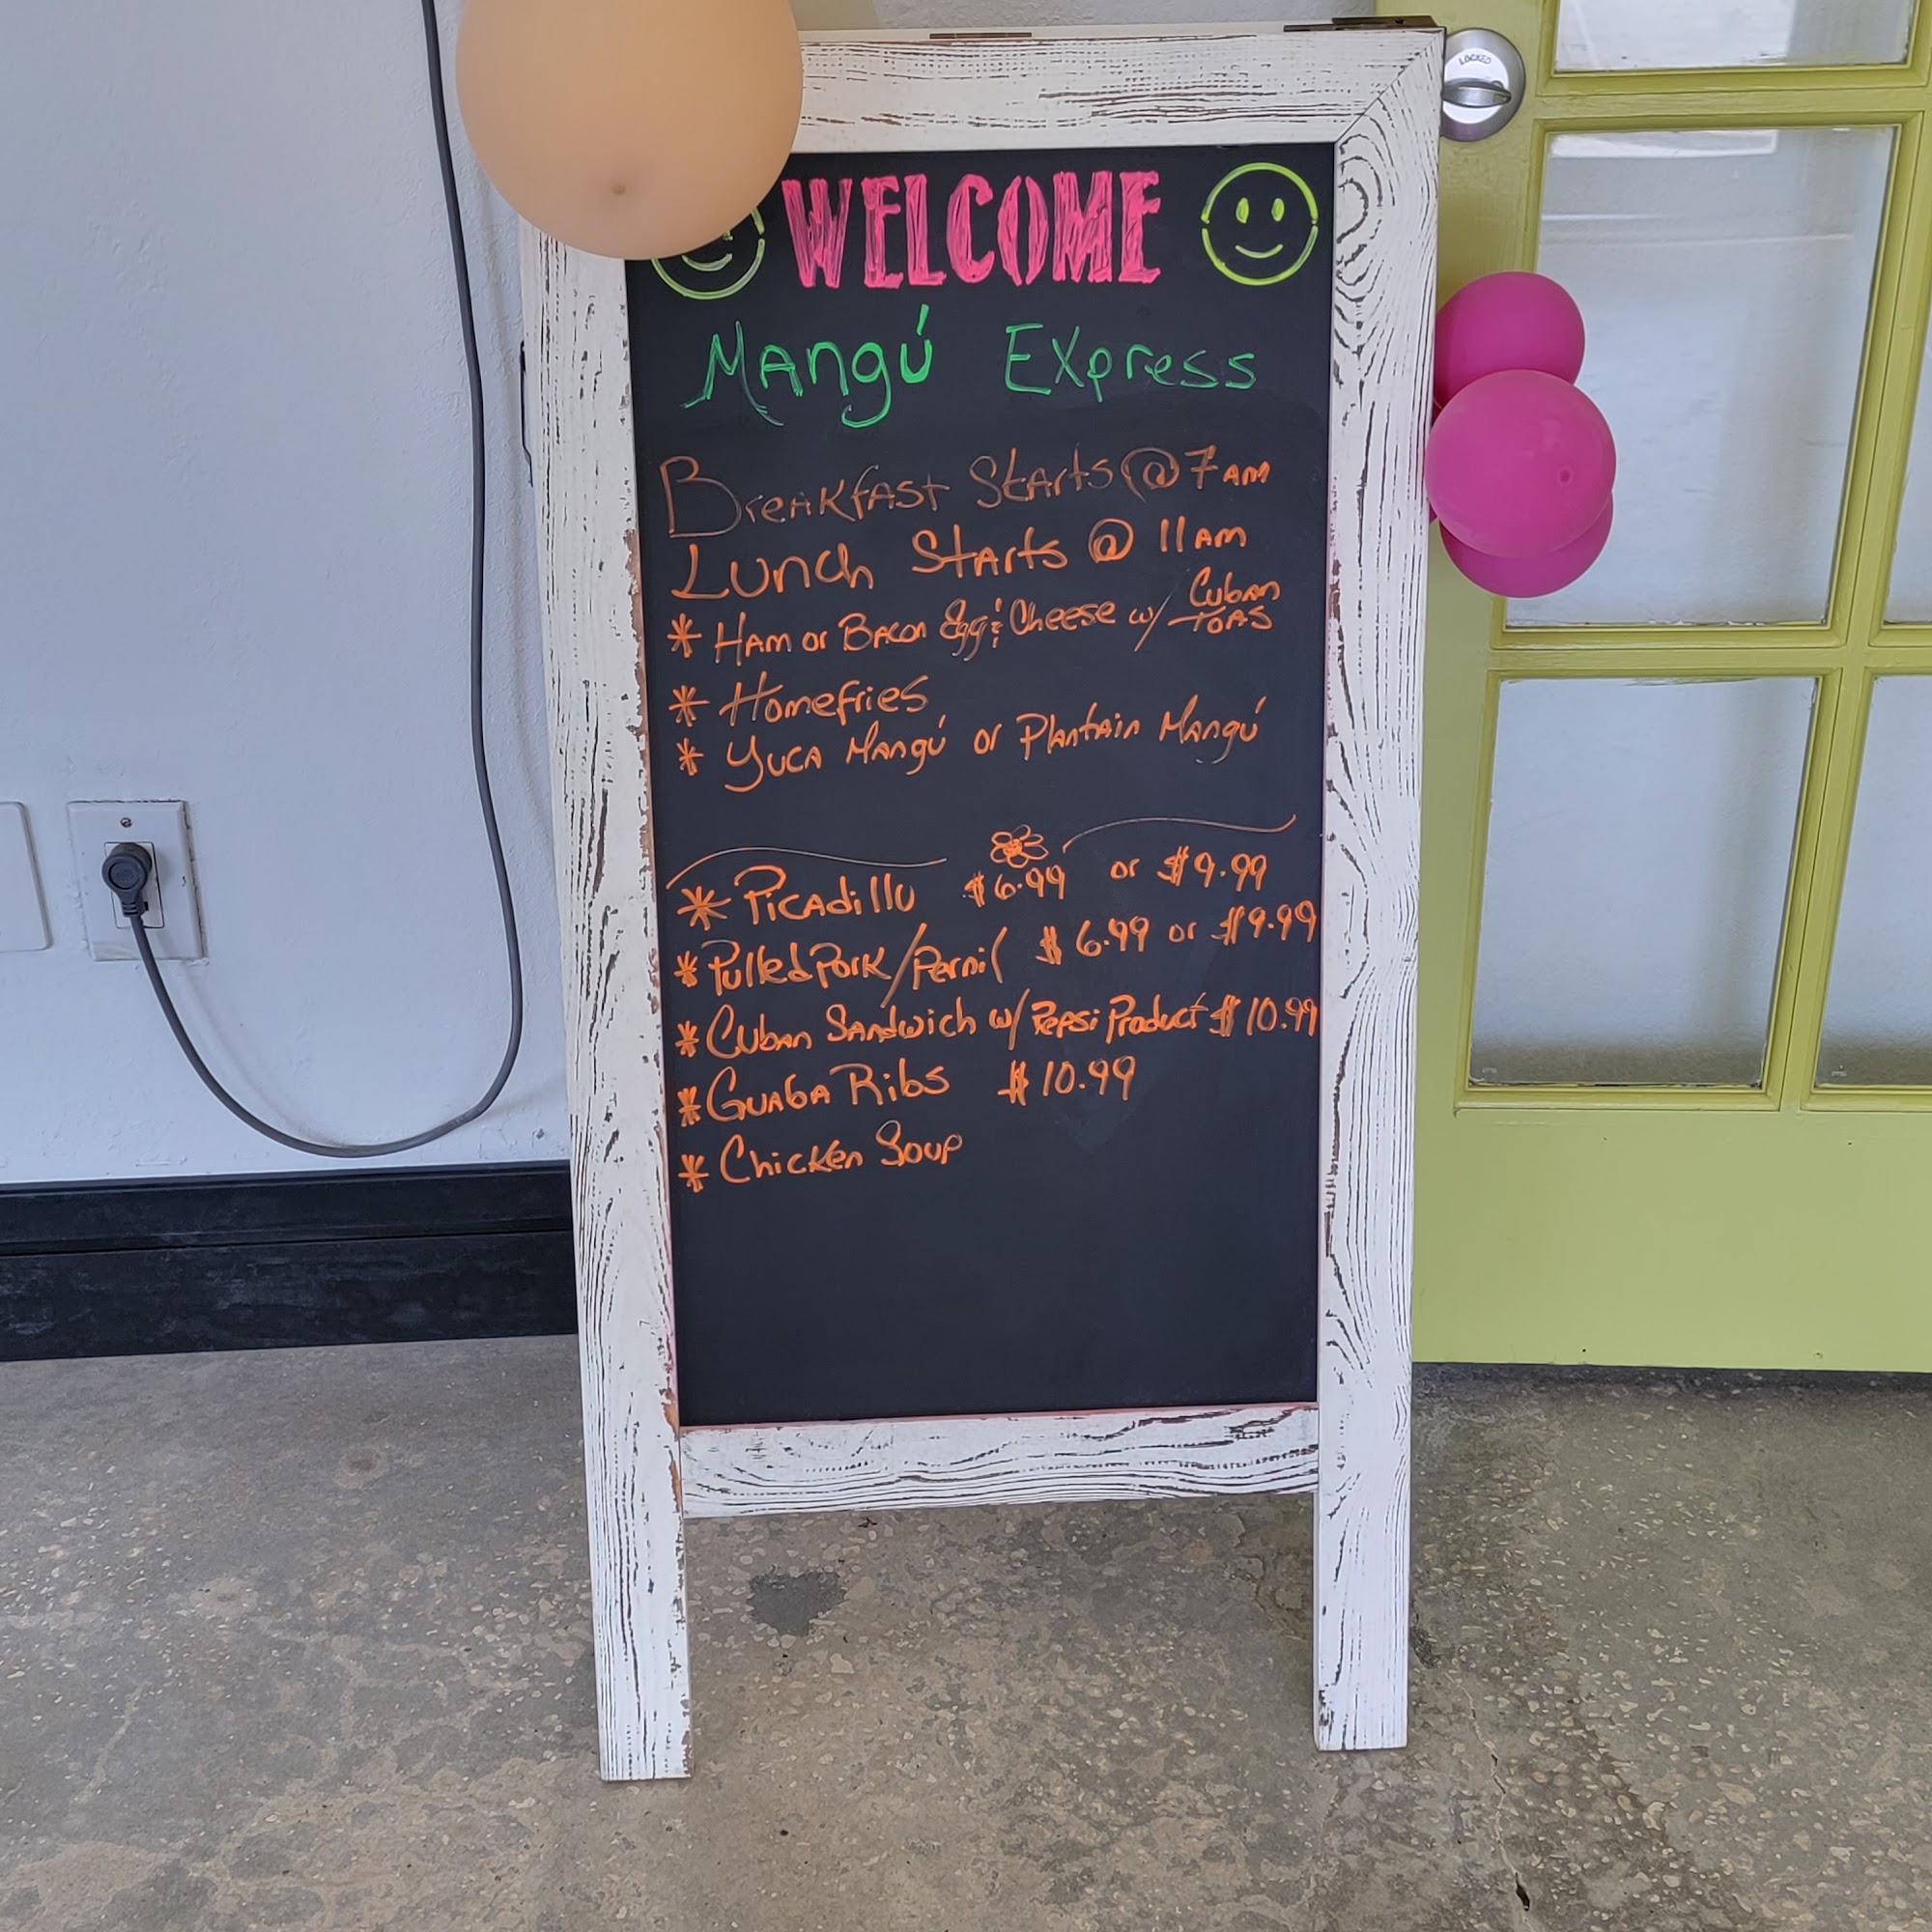 LOCKED
WELCOME
Mangú Express
Breakfast Starts @ 7am
Lunch Starts @ 11am
* Ham or Bacon Egg & Cheese w/ Cuban
TOAS
* Homefries
* Yuca Mangú or Plantain Mangú
* Picadillo $6.99 or $9.99
* Pulled Pork/Pernil $6.99 or $9.99
* Cuban Sandwich w/ Pepsi Product $10.99
* Guaba Ribs $10.99
* Chicken Soup